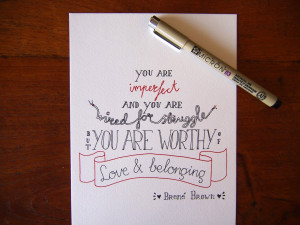 YOU ARE
imperfect
AND YOU ARE
wired for struggle
BUT YOU ARE WORTHY OF
Love & belonging
Brené Brown
MICRON